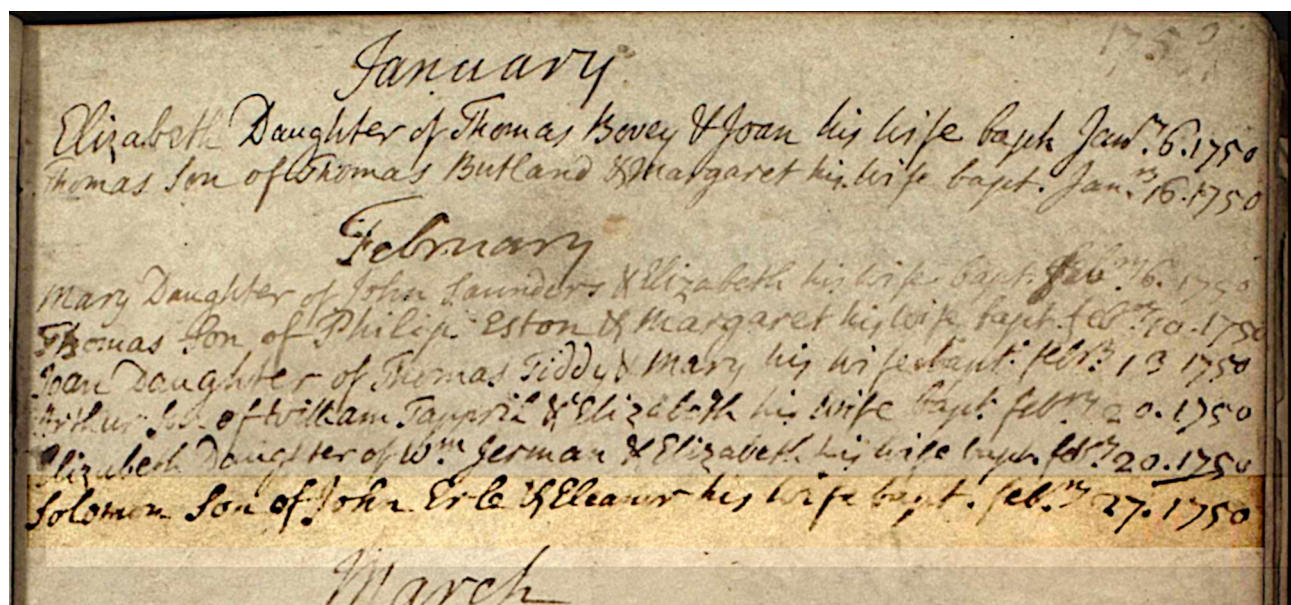 1750
January
Elizabeth Daughter of Thomas Bovey & Joan his wife bapt Janry. 6. 1750
Thomas Son of Thomas Butland & Margaret his wife bapt. Janry. 16. 1750
February
Mary Daughter of John Saunders & Elizabeth his wife bapt. Febry 6. 1750
Thomas Son of Philip Eston & Margaret his wife bapt. febry 10. 1750
Joan Daughter of Thomas Tiddy & Mary his wife bapt. febry 13 1750
Arthur Son of William Tappril & Elizabeth his wife bapt febry 20. 1750
Elizabeth Daughter of Wm. German & Elizabeth his wife bapt. febry 20. 1750
Solomon Son of John Erle & Eleanor his wife bapt. febry 27. 1750
March